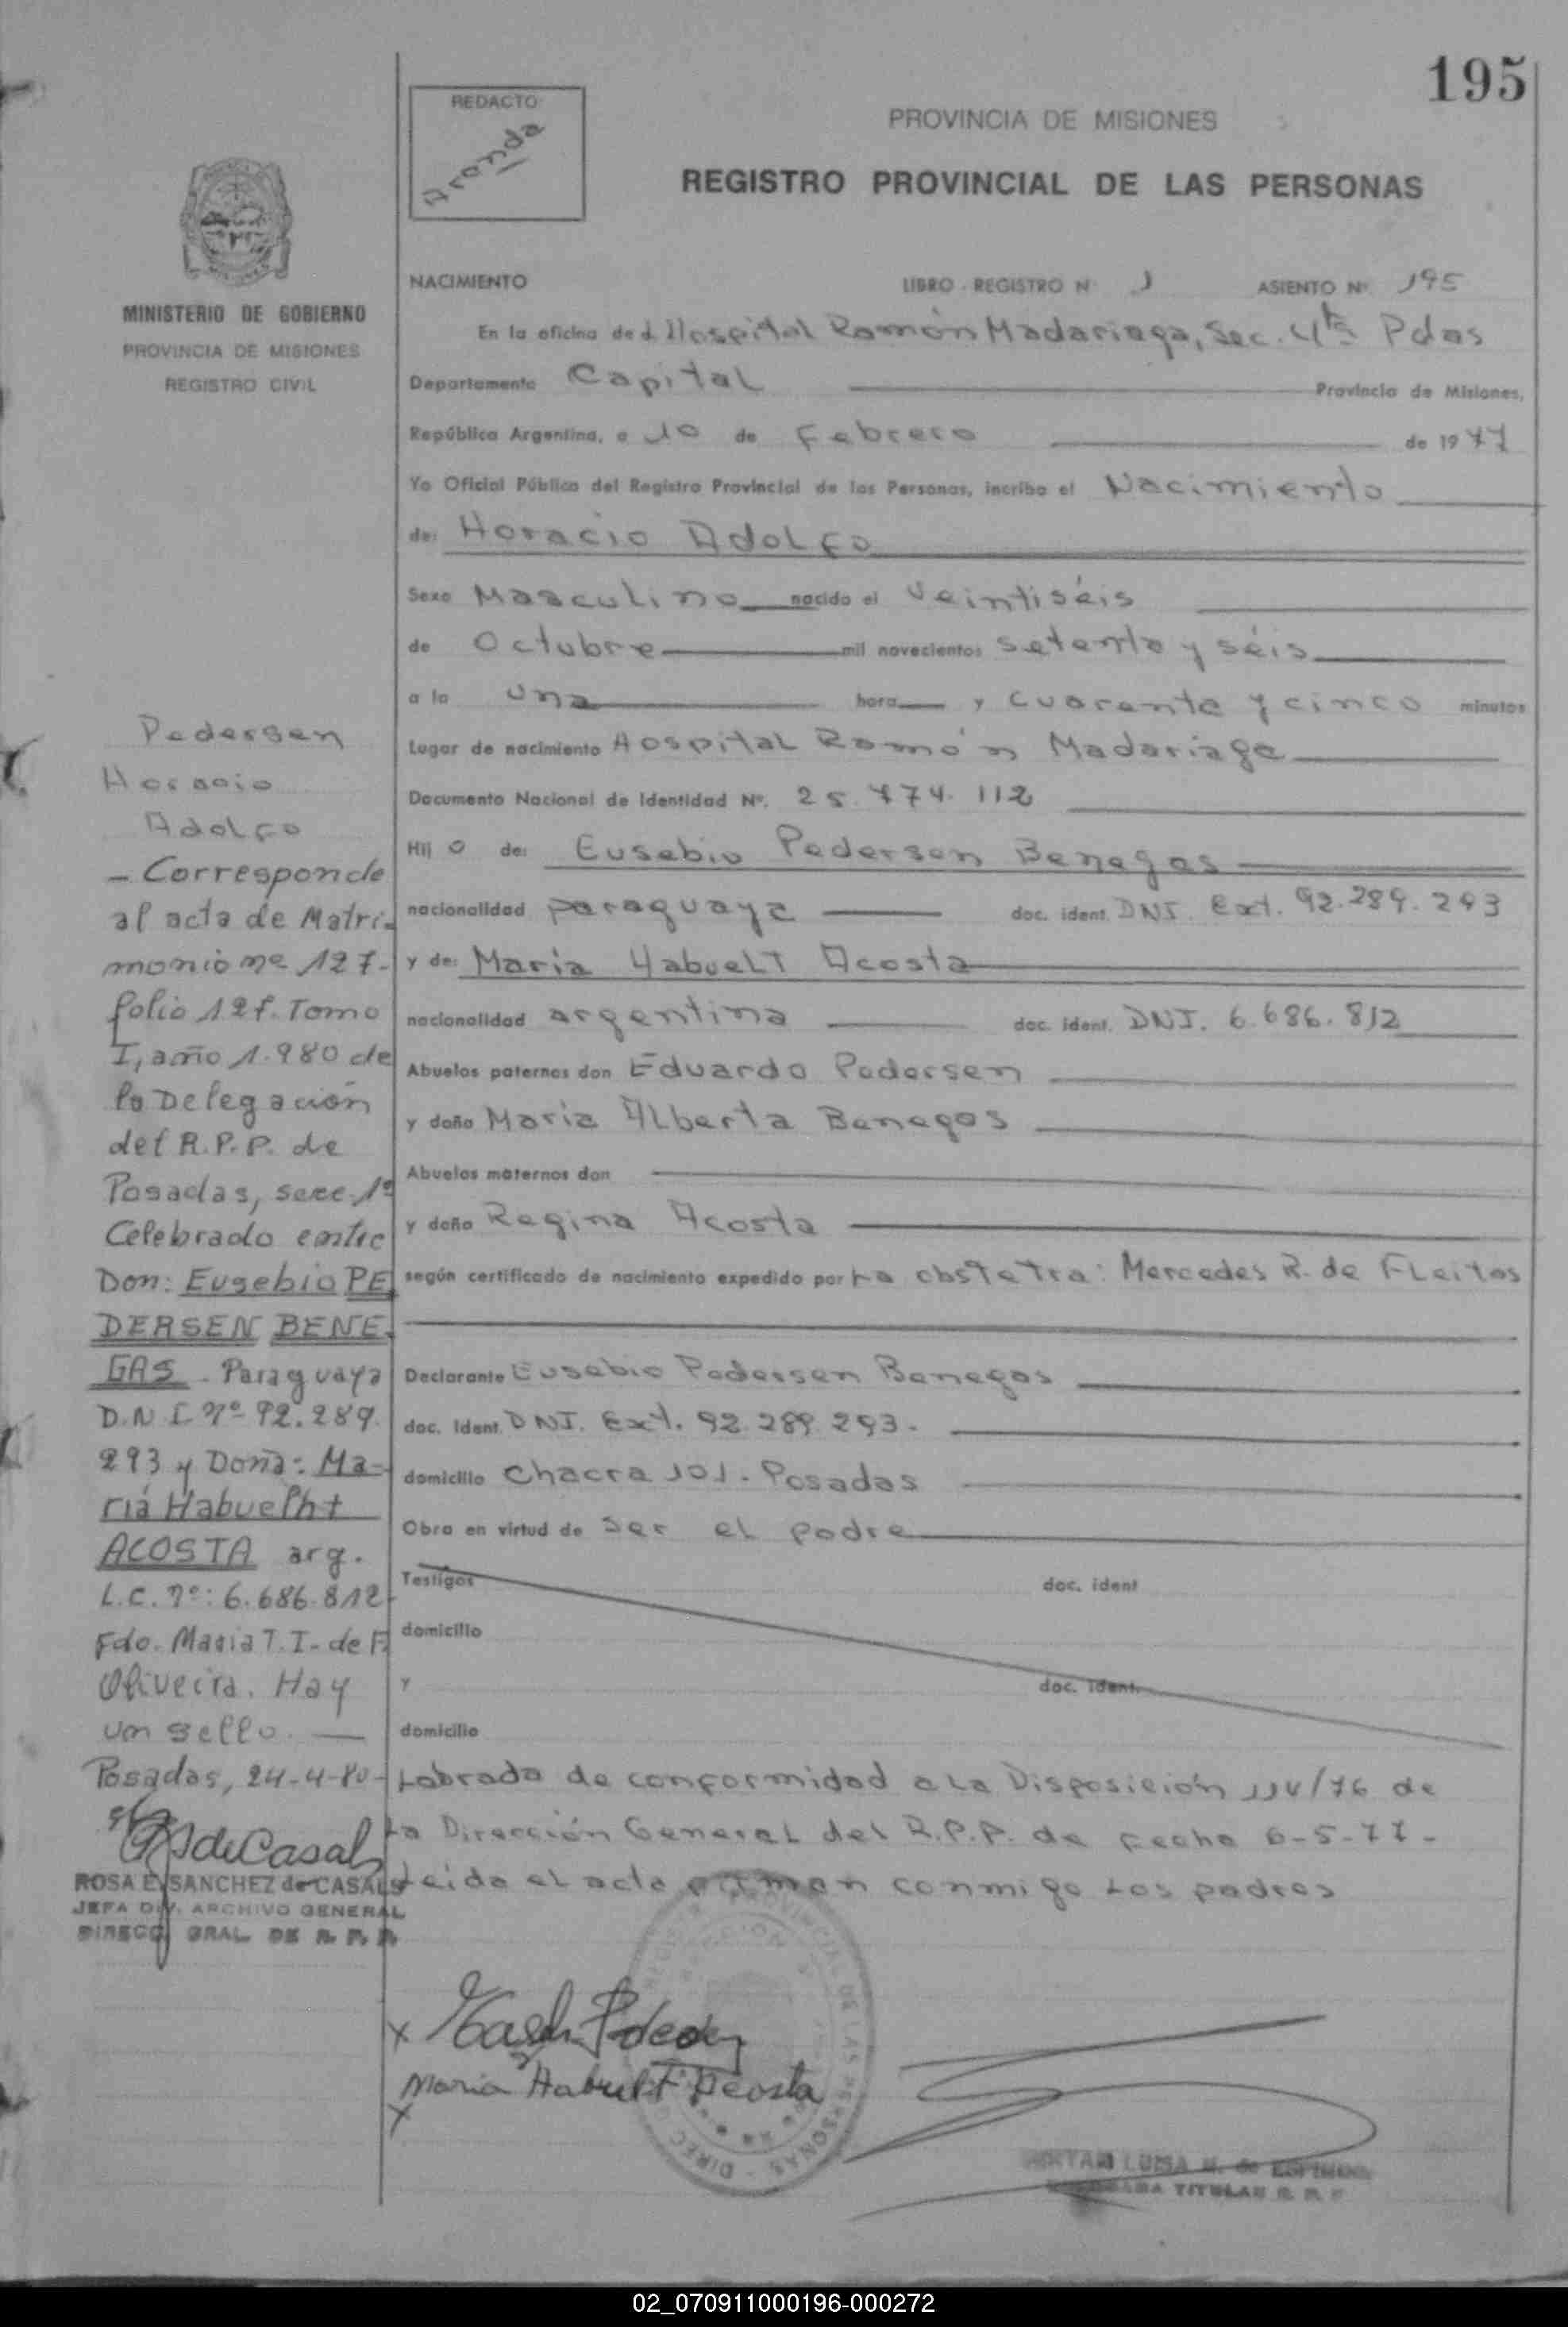 195
REDACTO
Aranda
PROVINCIA DE MISIONES
REGISTRO PROVINCIAL DE LAS PERSONAS
MINISTERIO DE GOBIERNO
PROVINCIA DE MISIONES
REGISTRO CIVIL
NACIMIENTO LIBRO - REGISTRO Nº 1 ASIENTO Nº 195
En la oficina de l Hospital Ramón Madariaga, Sec. 4ta Pdas
Departamento Capital Provincia de Misiones,
República Argentina, a 10 de Febrero de 1977
Yo Oficial Público del Registro Provincial de las Personas, incribo el Nacimiento
de: Horacio Adolfo
Sexo Masculino nacido el Veintiséis
de Octubre mil novecientos setenta y séis
a la una hora y cuarenta y cinco minutos
Lugar de nacimiento Hospital Ramón Madariaga
Documento Nacional de Identidad Nº. 25.474.112
Hij o de: Eusebio Pedersen Benegas
nacionalidad paraguaya doc. ident. DNI. Ext. 92.289.293
y de: Maria HabueLT Acosta
nacionalidad argentina doc. ident. DNI. 6.686.812
Abuelos paternos don Eduardo Pedersen
y doña Maria Alberta Benegas
Abuelos maternos don
y doña Regina Acosta
según certificado de nacimiento expedido por La obstetra: Mercedes R. de Fleitas
Declarante Eusebio Pedersen Benegas
doc. ident. DNI. Ext. 92.289.293.
domicilio Chacra 101. Posadas
Obra en virtud de ser el padre
Testigos doc. ident
domicilio
y doc. ident.
domicilio
Labrada de conformidad a La Disposición 114/76 de
La Dirección General del R.P.P. de fecha 6-5-77-
Leida el acta firman conmigo Los padres
Pedersen
Horacio
Adolfo
- Corresponde
al acta de Matri-
monio nº 127-
folio 127. Tomo
I, año 1.980 de
la Delegación
del R.P.P. de
Posadas, secc. 1ª
Celebrado entre
Don: Eusebio PE
DERSEN BENE-
GAS. Paraguaya
D.N.I. nº 92.289.
293 y Doña: Ma-
ría Habuelht
ACOSTA arg.
L.C. nº: 6.686.812-
Fdo. Maria T. I. de F.
Oliveira. Hay
un sello.
Posadas, 24-4-80-
de Casals
ROSA E. SANCHEZ de CASALS
JEFA DIV. ARCHIVO GENERAL
DIRECC. GRAL. DE R. P. P.
Maria Habuelt Acosta
TITULAR R. P. P.
02_070911000196-000272